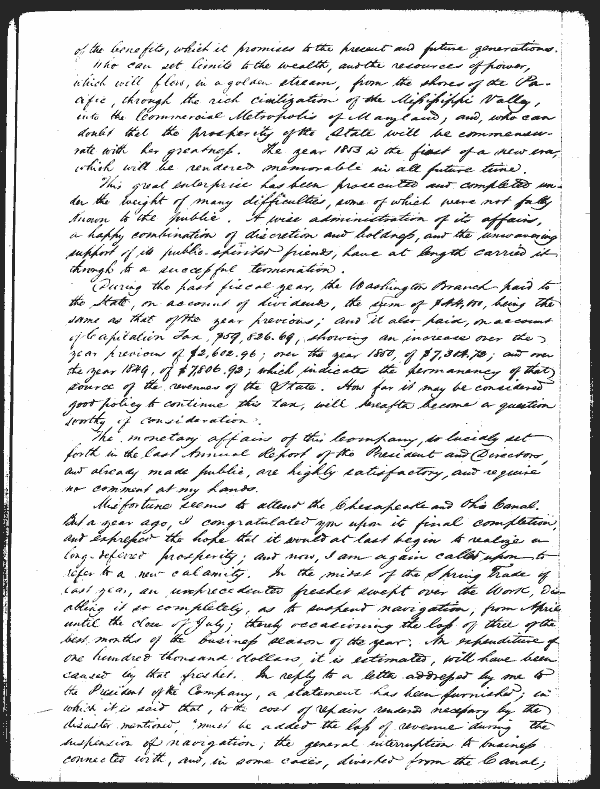 of the benefits, which it promises to the present and future generations.
Who can set limits to the wealth, and the resources of power,
which will flow, in a golden stream, from the shores of the Pa-
cific, through the rich civilization of the Mississippi Valley,
into the Commercial Metropolis of Maryland; and, who can
doubt that the prosperity of the State will be commensu-
rate with her greatness. The year 1853 is the first of a new era,
which will be rendered memorable in all future time.
This great enterprise has been prosecuted and completed un-
der the weight of many difficulties, some of which were not fully
known to the public. A wise administration of its affairs,
a happy combination of discretion and boldness, and the unwavering
support of its public-spirited friends, have at length carried it
through to a successful termination.
During the past fiscal year, the Washington Branch paid to
the State, on account of dividends, the sum of being the
same as that of the year previous; and it also paid, on account
of Capitation Tax, $59,826.69, showing an increase over the
year previous of $2,602.96; over the year 1850, of and over
the year 1849, of $7,806.93; which indicates the permanency of that
source of the revenues of the State. How far it may be considered
good policy to continue this tax, will hereafter become a question
worthy of consideration.
The monetary affairs of this Company, so lucidly set
forth in the last Annual Report of the President and Directors,
and already made public, are highly satisfactory, and require
no comment at my hands.
Misfortune seems to attend the Chesapeake and Ohio Canal.
But a year ago, I congratulated you upon it final completion,
and expressed the hope that it would at last begin to realize a
long-deferred prosperity; and now, I am again called upon to
refer to a new calamity. In the midst of the Spring Trade of
last year, an unprecedented freshet swept over the Work, dis-
abling it so completely, as to suspend navigation, from April
until the close of July; thereby occasioning the loss of three of the
best months of the business season of the year. An expenditure of
one hundred thousand dollars, it is estimated, will have been
caused by that freshet. In reply to a letter addressed by me to
the President of the Company, a statement has been furnished; in
which it is said that, to the cost of repairs rendered necessary by the
disaster mentioned, "must be added the loss of revenue during the
suspension of navigation; the general interruption to business
connected with, and, in some cases, diverted from the Canal;